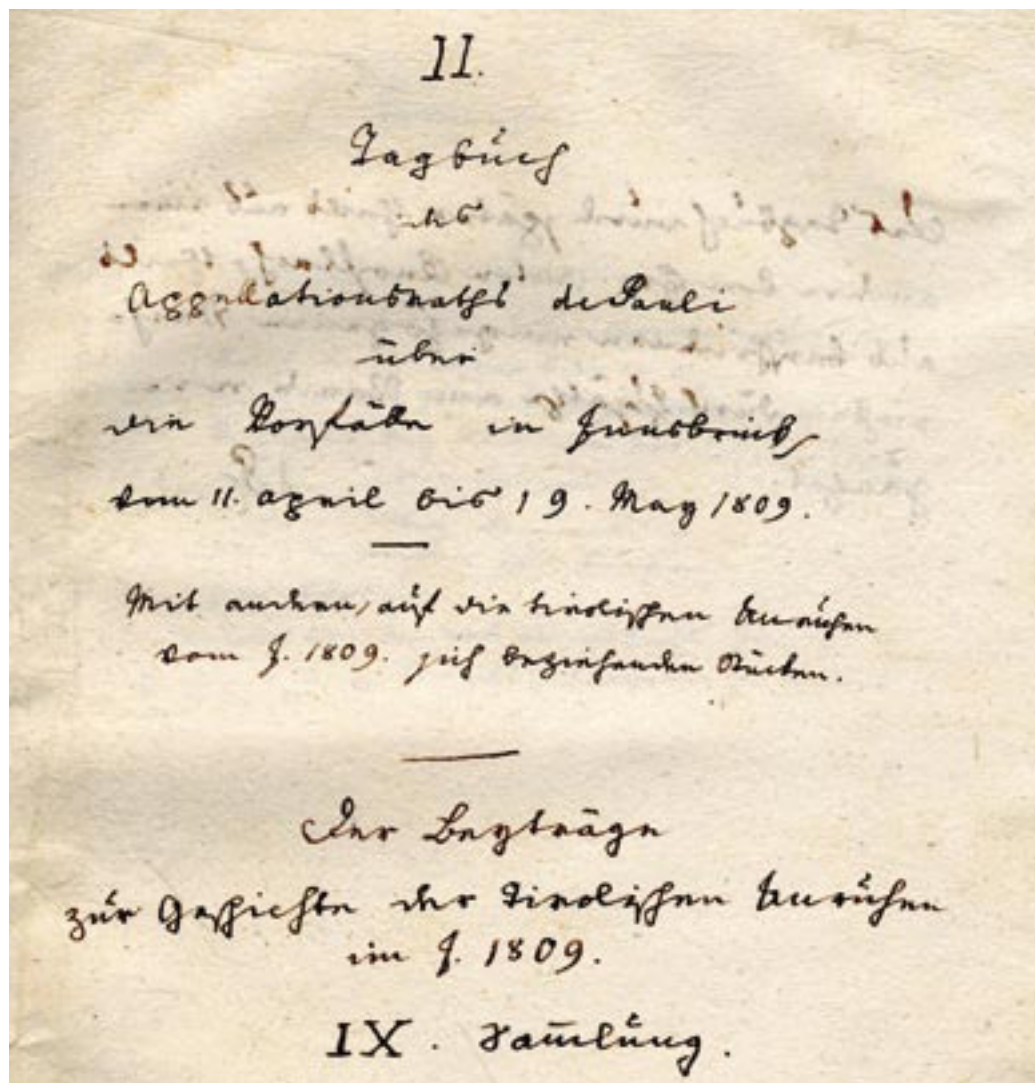 II.
Tagbuch
des
Appellationsraths de Pauli
über
die Vorfälle in Innsbruck,
vom 11. April bis 19. May 1809.
Mit andern, auf die tirolischen Unruhen
vom J. 1809. sich beziehenden Stücken.
Der Beyträge
zur Geschichte der Tirolischen Unruhen
im J. 1809.
IX. Sam̄lung.